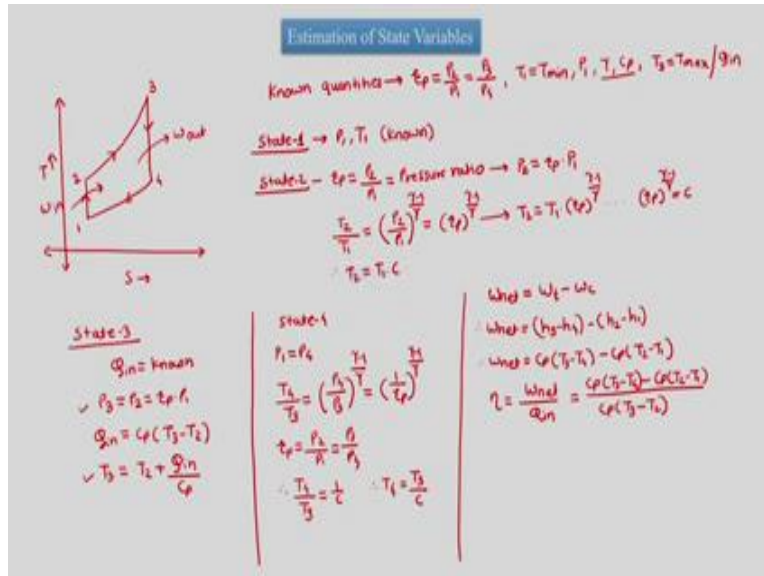 Estimation of State Variables
Known quantities → r_p = P₂/P₁ = P₃/P₄, T₁ = Tmin, P₁, γ, Cp, T₃ = Tmax/Qin
State-1 → P₁, T₁ (known)
State-2 – r_p = P₂/P₁ = Pressure ratio → P₂ = r_p·P₁
T₂/T₁ = (P₂/P₁)^(γ-1/γ) = (r_p)^(γ-1/γ) → T₂ = T₁·(r_p)^(γ-1/γ) (r_p)^(γ-1/γ) = c
∴ T₂ = T₁·c
T↑
3
Wout
2
Win
4
1
S →
State-3
Qin = known
✓ P₃ = P₂ = r_p·P₁
Qin = Cp(T₃-T₂)
✓ T₃ = T₂ + Qin/Cp
State-4
P₁ = P₄
T₄/T₃ = (P₄/P₃)^(γ-1/γ) = (1/r_p)^(γ-1/γ)
r_p = P₂/P₁ =
∴ T₄/T₃ = 1/c ∴ T₄ = T₃/c
Wnet = Wt - Wc
∴ Wnet = (h₃-h₄) - (h₂-h₁)
∴ Wnet = Cp(T₃-T₄) - Cp(T₂-T₁)
η = Wnet/Qin = Cp(T₃-T₄) - Cp(T₂-T₁)/Cp(T₃-T₂)